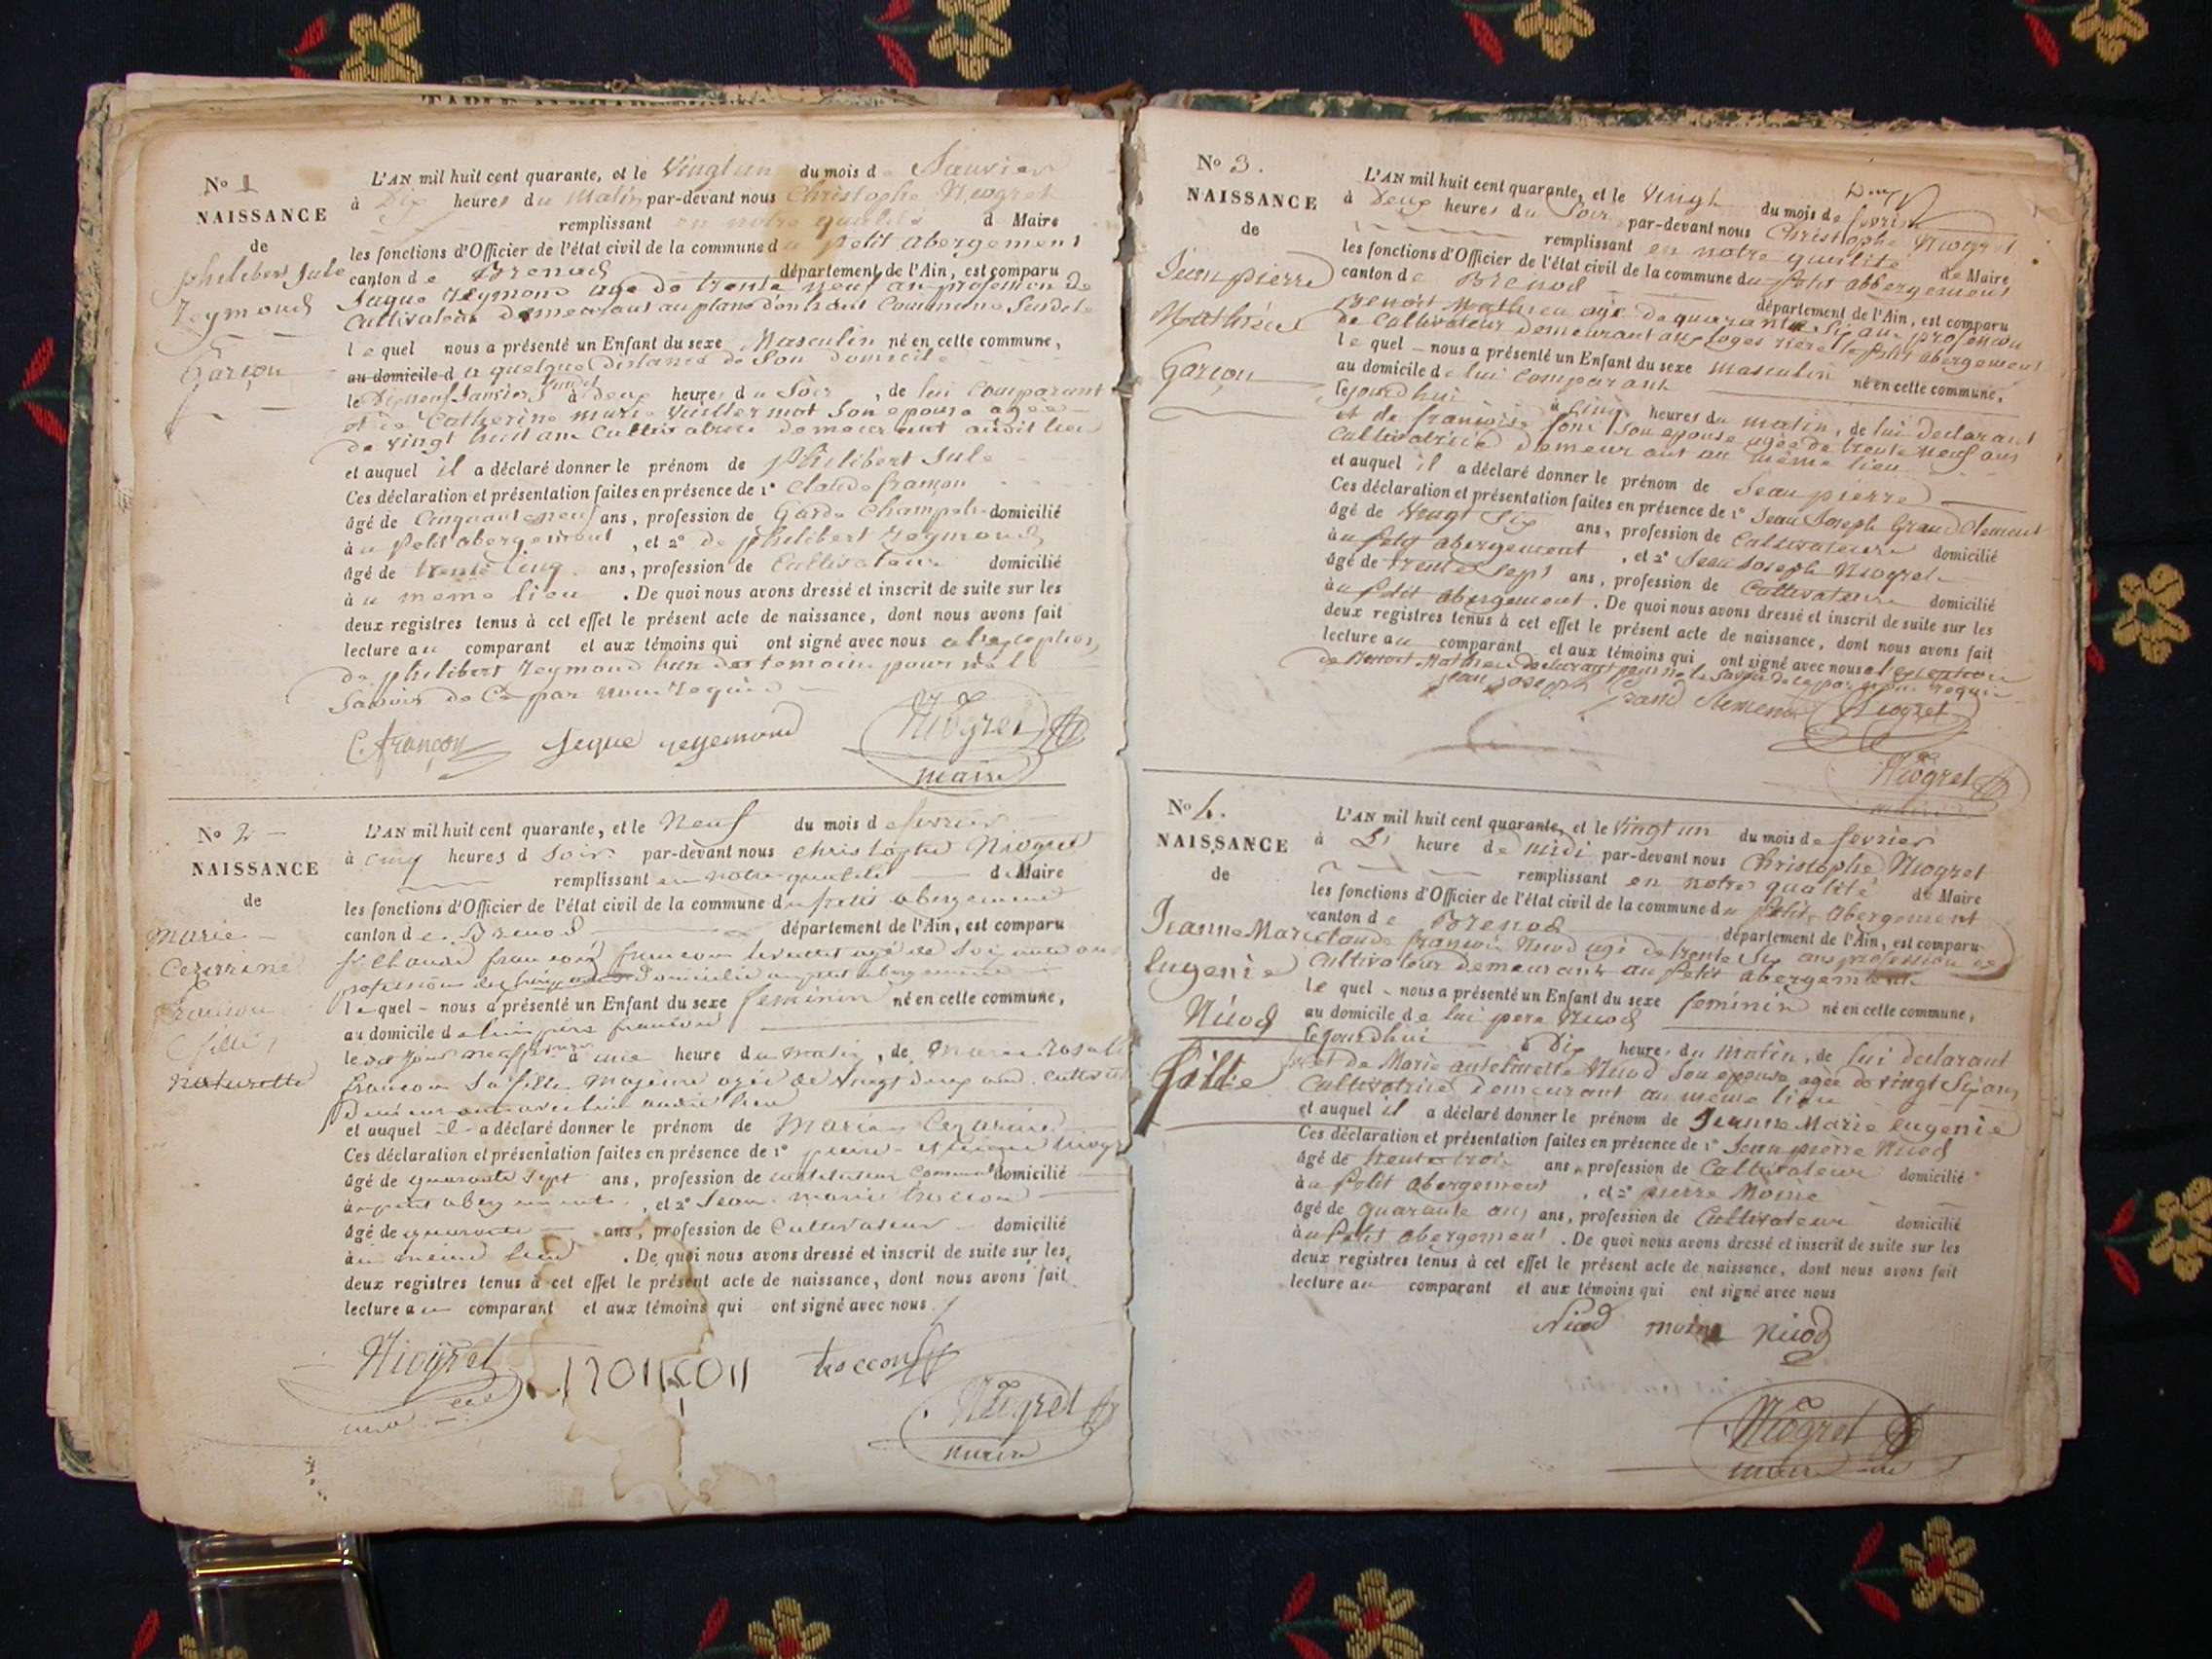 N° 1
NAISSANCE
de
philibert Jule
Reymond
Garçon
L'AN mil huit cent quarante, et le Vingt un du mois de Janvier
à Dix heures du Matin par-devant nous Christophe Niogret
remplissant en notre qualité d Maire
les fonctions d'Officier de l'état civil de la commune du petit abergement
canton de Brenod département de l'Ain, est comparu
Jaque Reymond age de trente neuf an profession de
Cultivateur demeurant au plans d'en haut Commune Susdite
le quel nous a présenté un Enfant du sexe Masculin né en cette commune,
au domicile d a quelque distance de Son domicile
le Dixneuf Janvier à deux heures du Soir, de lui Comparant
et de Catherine marie Vuillermot Son epouse agée
de vingt huit ans Cultivatrice demeurant audit lieu
et auquel il a déclaré donner le prénom de Philibert Jule
Ces déclaration et présentation faites en présence de 1° Claude françon
âgé de Cinquante neuf ans, profession de Garde Champetre domicilié
à u petit abergement, et 2° de philibert Reymond
âgé de trente cinq ans, profession de Cultivateur domicilié
à u meme lieu. De quoi nous avons dressé et inscrit de suite sur les
deux registres tenus à cet effet le présent acte de naissance, dont nous avons fait
lecture au comparant et aux témoins qui ont signé avec nous a lexception
de philibert Reymond l'un des temoins pour ne le
Savoir de Ce par nous requis
C. françon Jeque reyemond Niogret
maire
N° 2
NAISSANCE
de
Marie
Cezarine
françon
fille
naturelle
L'AN mil huit cent quarante, et le Neuf du mois de fevrier
à cinq heures d Soir par-devant nous christophe Niogret
remplissant en notre qualité de Maire
les fonctions d'Officier de l'état civil de la commune du petit abergement
canton de Brenod département de l'Ain, est comparu
domicilié au petit abergement
le quel nous a présenté un Enfant du sexe feminin né en cette commune,
au domicile de lui père françon
à une heure du matin, de Marie Rosalie
françon Sa fille Majeure agée de vingt deux ans
et auquel il a déclaré donner le prénom de Marie Cezarine
Ces déclaration et présentation faites en présence de 1°
âgé de quarante Sept ans, profession de instituteur Communal domicilié
à u petit abergement, et 2° Jean marie troccon
âgé de quarante ans, profession de Cultivateur domicilié
à u meme lieu. De quoi nous avons dressé et inscrit de suite sur les
deux registres tenus à cet effet le présent acte de naissance, dont nous avons fait
lecture au comparant et aux témoins qui ont signé avec nous
Niogret françon troccon
Niogret
maire
N° 3.
NAISSANCE
de
Jean pierre
Mathieu
Garçon
L'AN mil huit cent quarante, et le Vingt Deux du mois de fevrier
à Deux heures du Soir par-devant nous Christophe Niogret
remplissant en notre qualité de Maire
les fonctions d'Officier de l'état civil de la commune du petit abbergement
canton de Brenod département de l'Ain, est comparu
Benoit Mathieu agé de quarante Six ans profession
de Cultivateur demeurant aux loges riere le petit abergement
le quel nous a présenté un Enfant du sexe masculin né en cette commune,
au domicile de lui Comparant
cejourdhui à Cinq heures du matin, de lui declarant
et de françoise son epouse agée de trente neuf ans
Cultivatrice demeurant au même lieu
et auquel il a déclaré donner le prénom de Jean pierre
Ces déclaration et présentation faites en présence de 1° Jean Joseph Grand Clement
âgé de Vingt Six ans, profession de Cultivateur domicilié
à u petit abergement, et 2° Jean Joseph Niogret
âgé de trente Sept ans, profession de Cultivateur domicilié
à u petit abergement. De quoi nous avons dressé et inscrit de suite sur les
deux registres tenus à cet effet le présent acte de naissance, dont nous avons fait
lecture au comparant et aux témoins qui ont signé avec nous a l'exception
de Benoit Mathieu declarant pour ne le Savoir de ce par nous requis
jean joseph Grand Clement Niogret
Niogret
maire
N° 4.
NAISSANCE
de
Jeanne Marie
Eugenie
Nicod
fille
L'AN mil huit cent quarante, et le Vingt un du mois de fevrier
à heure de midi par-devant nous Christophe Niogret
remplissant en notre qualité de Maire
les fonctions d'Officier de l'état civil de la commune du petit abergement
canton de Brenod département de l'Ain, est comparu
Claude françois Nicod agé de trente Six ans profession de
Cultivateur demeurant au petit abergement
le quel nous a présenté un Enfant du sexe feminin né en cette commune,
au domicile de lui pere Nicod
cejourdhui à Dix heures du Matin, de lui declarant
et de Marie antelmette Nicod Son epouse agée de vingt Six ans
Cultivatrice demeurant au même lieu
et auquel il a déclaré donner le prénom de Jeanne Marie Eugenie
Ces déclaration et présentation faites en présence de 1° Jean pierre Nicod
âgé de trente trois ans, profession de Cultivateur domicilié
à u petit abergement, et 2° pierre Moine
âgé de quarante ans ans, profession de Cultivateur domicilié
à u petit abergement. De quoi nous avons dressé et inscrit de suite sur les
deux registres tenus à cet effet le présent acte de naissance, dont nous avons fait
lecture au comparant et aux témoins qui ont signé avec nous
Nicod moine Nicod
Niogret
maire